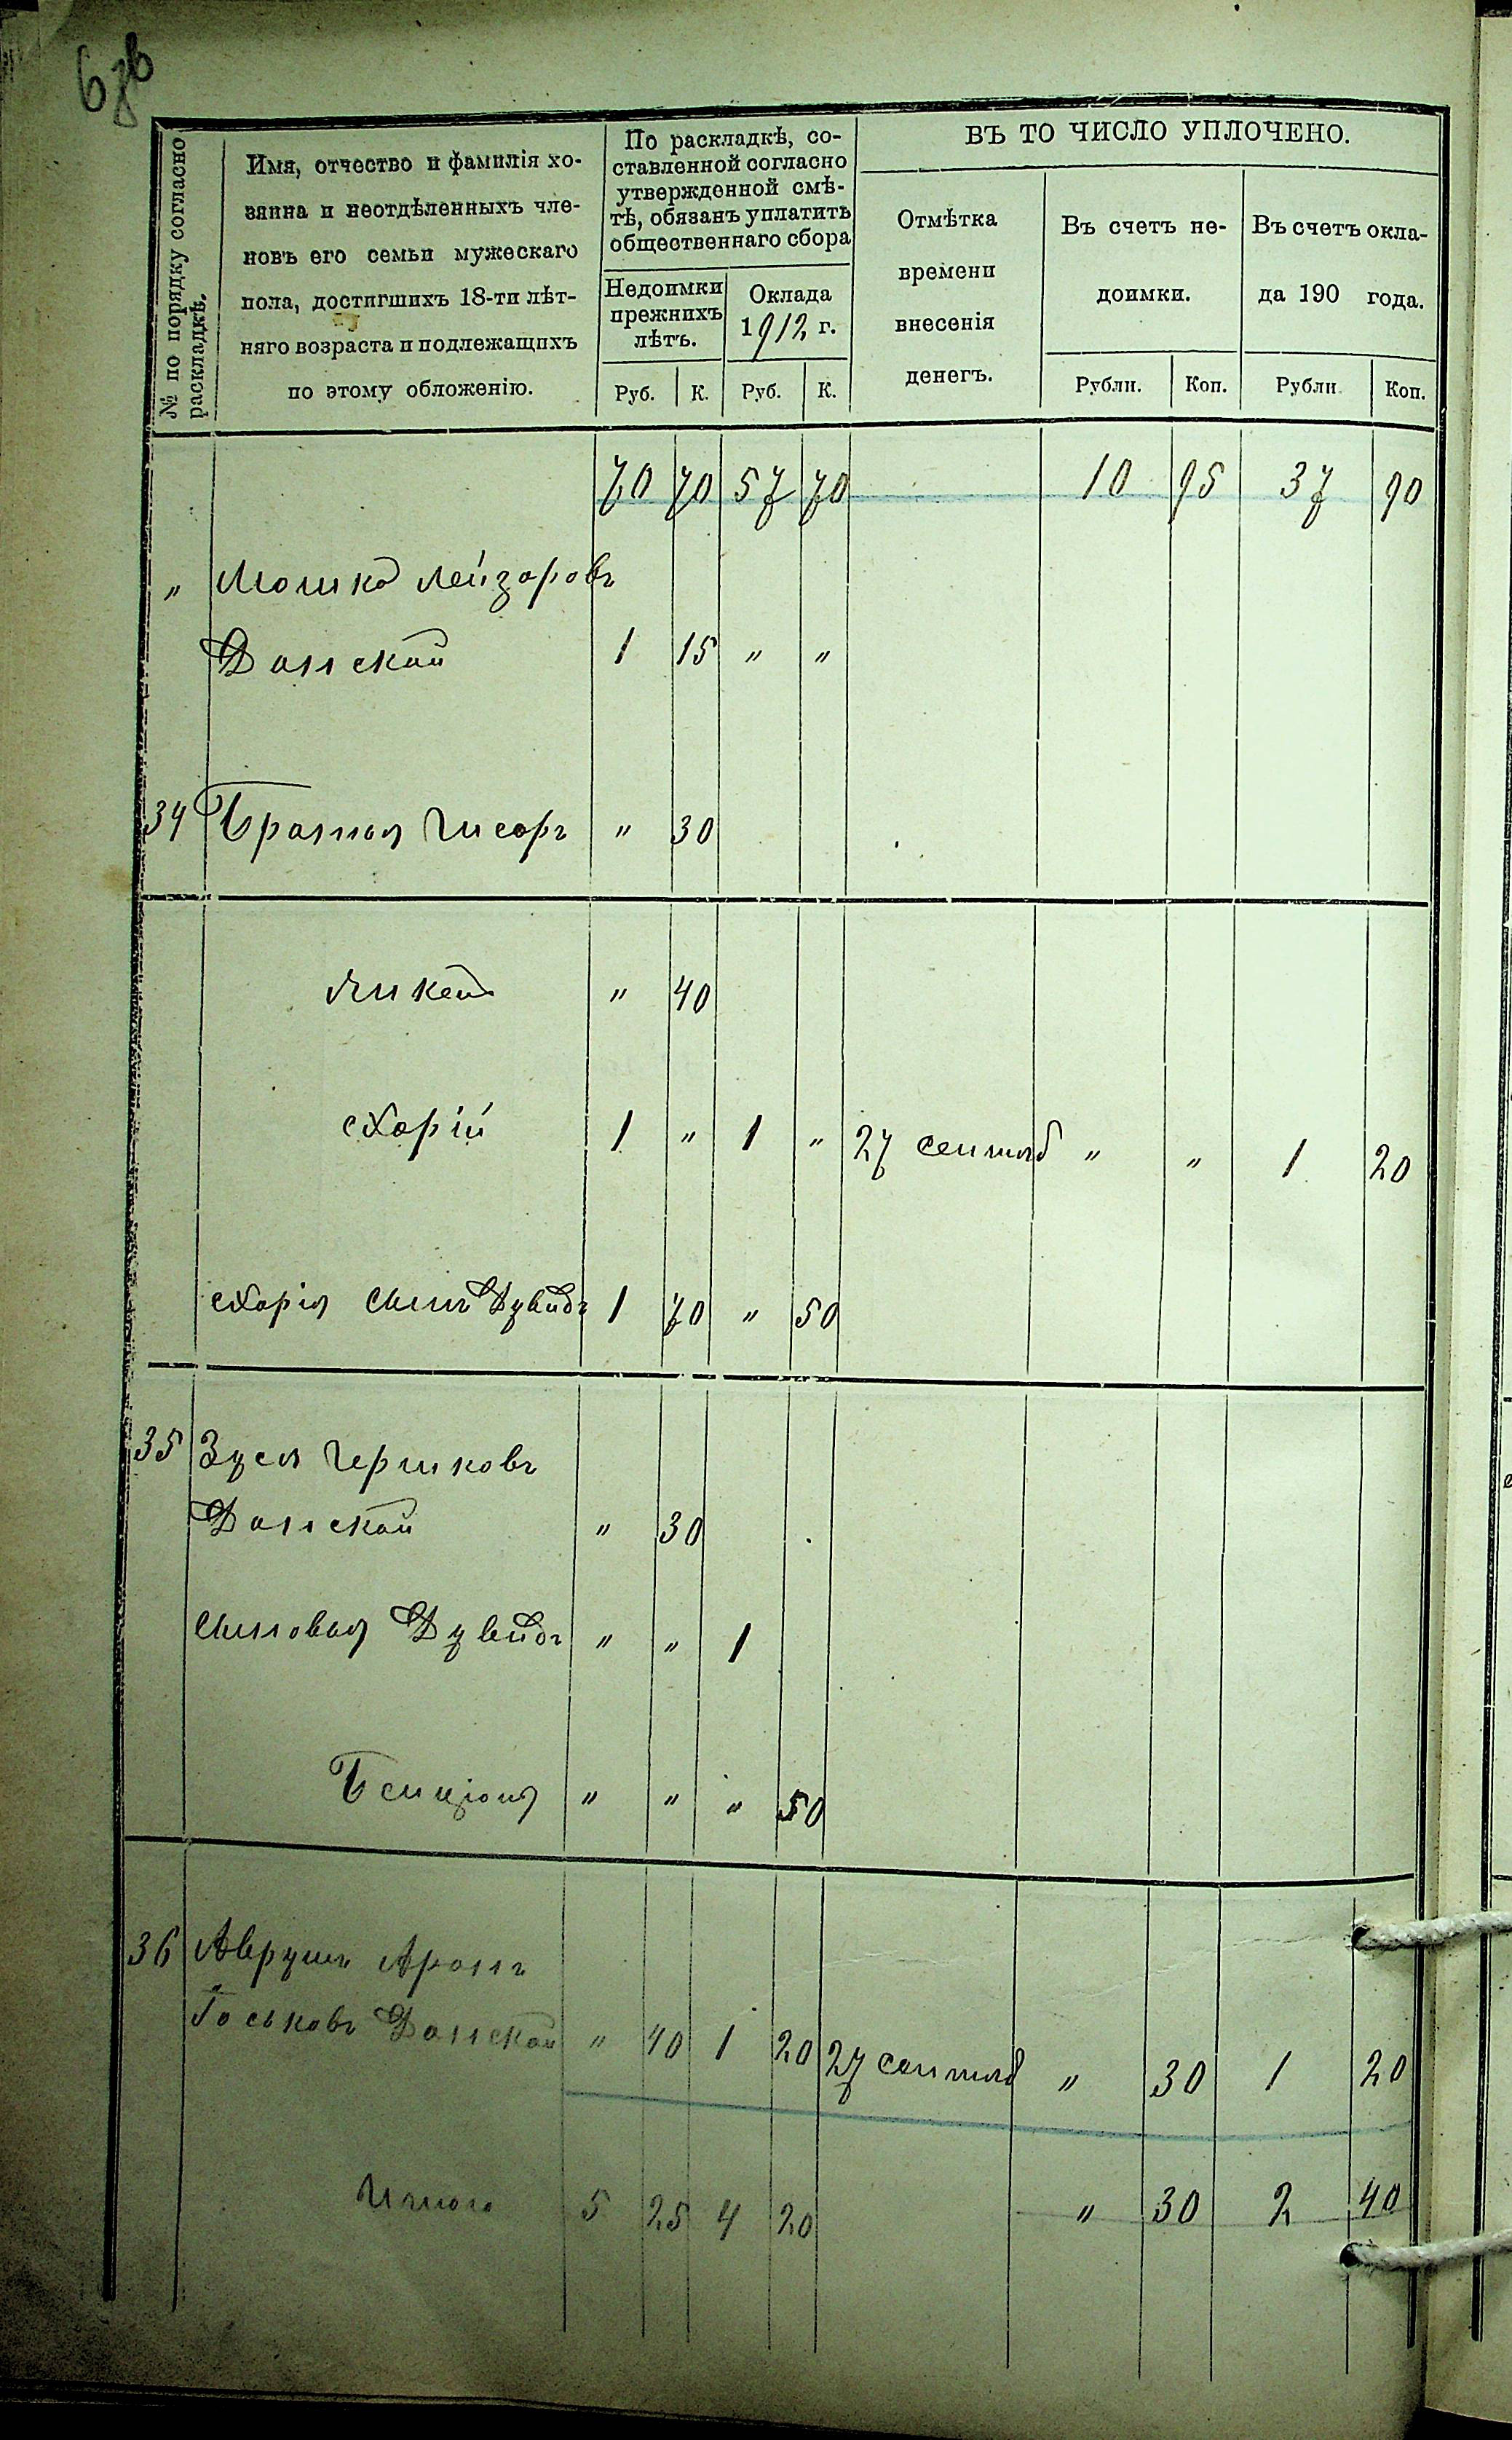 6зв
№ по порядку согласно раскладкѣ.
Имя, отчество и фамилія хо-
зяина и неотдѣленныхъ чле-
новъ его семьи мужескаго
пола, достигшихъ 18-ти лѣт-
няго возраста и подлежащихъ
по этому обложенію.
По раскладкѣ, со-
ставленной согласно
утвержденной смѣ-
тѣ, обязанъ уплатить
общественнаго сбора
Недоимки
прежнихъ
лѣтъ.
Оклада
1912 г.
ВЪ ТО ЧИСЛО УПЛОЧЕНО.
Отмѣтка
времени
внесенія
денегъ.
Въ счетъ не-
доимки.
Въ счетъ окла-
да 190 года.
Руб. К. Руб. К. Рубли. Коп. Рубли Коп.
70 70 57 70 10 95 37 90
" Мошко Лейзоровъ
Донской 1 15 " "
34 Братья " 30
" 40
Схарій 1 " 1 " 27 сентяб " " 1 20
Схарія сынъ Дувидъ 1 70 " 50
35 Зусь Гершковъ
Донской " 30
Сыновья Дувидъ " " 1
Бенціонъ " " " 50
36 Аврумъ Аронъ
Іоськовъ Донской " 40 1 20 27 сентяб " 30 1 20
Итого 5 25 4 20 " 30 2 40